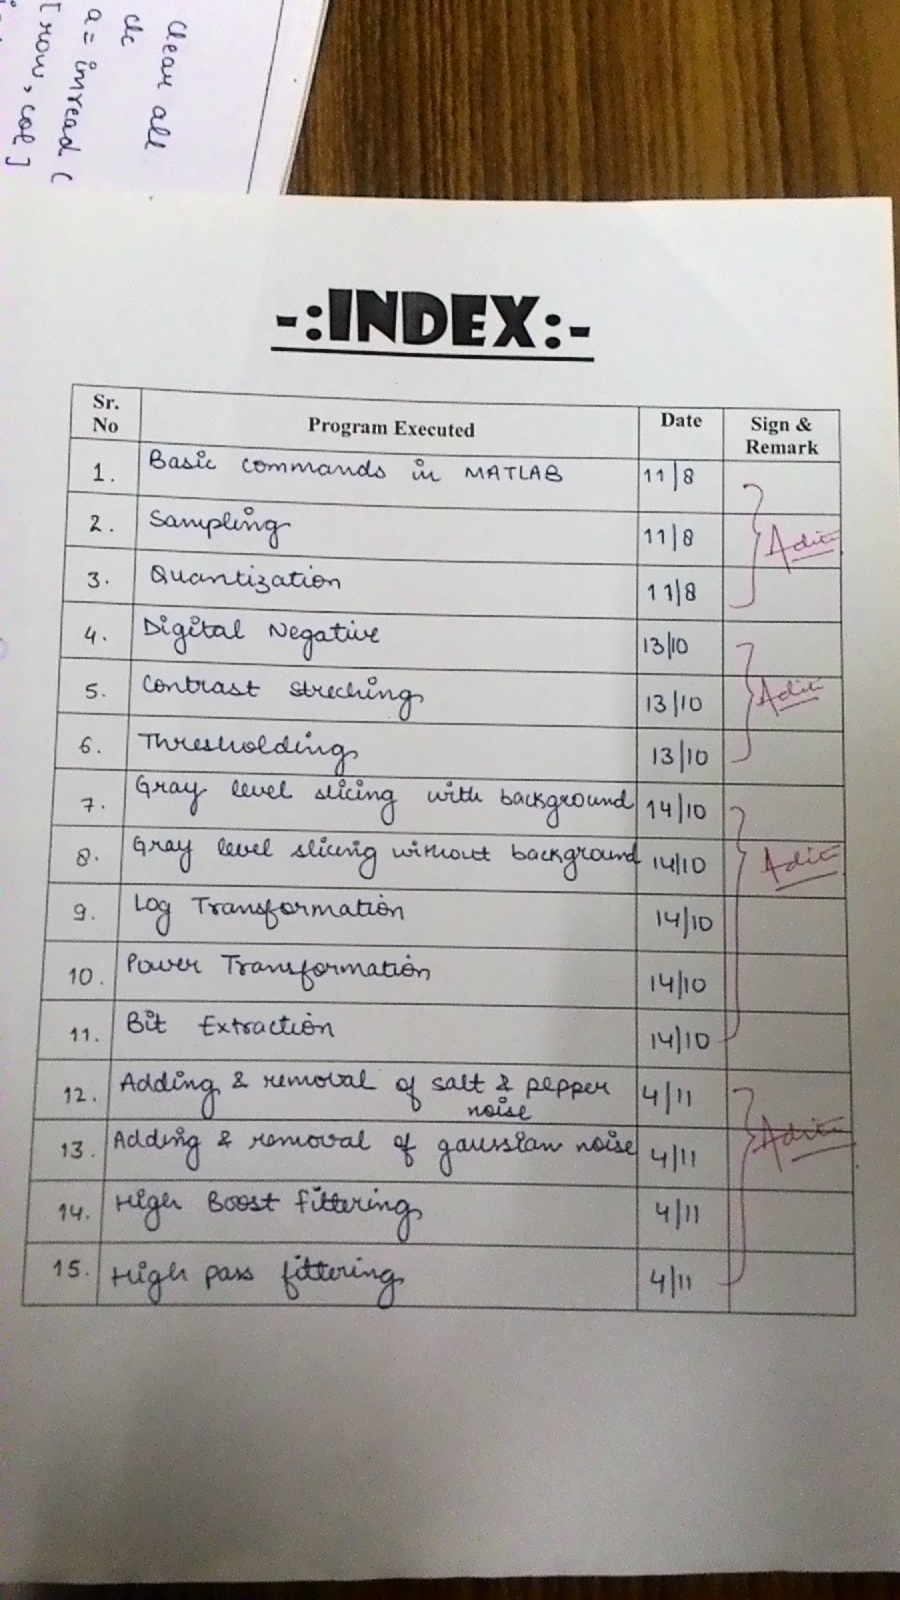 clear all
clc
a = imread (
[ row, col ]
-:INDEX:-
Sr. No Program Executed Date Sign & Remark
1. Basic commands in MATLAB 11/8
2. Sampling 11/8 Aditi
3. Quantization 11/8
4. Digital Negative 13/10
5. Contrast streching 13/10 Aditi
6. Thresholding 13/10
7. Gray level slicing with background 14/10
8. Gray level slicing without background 14/10 Aditi
9. Log Transformation 14/10
10. Power Transformation 14/10
11. Bit Extraction 14/10
12. Adding & removal of salt & pepper noise 4/11
13. Adding & removal of gaussian noise 4/11 Aditi
14. High Boost fittering 4/11
15. High pass fittering 4/11